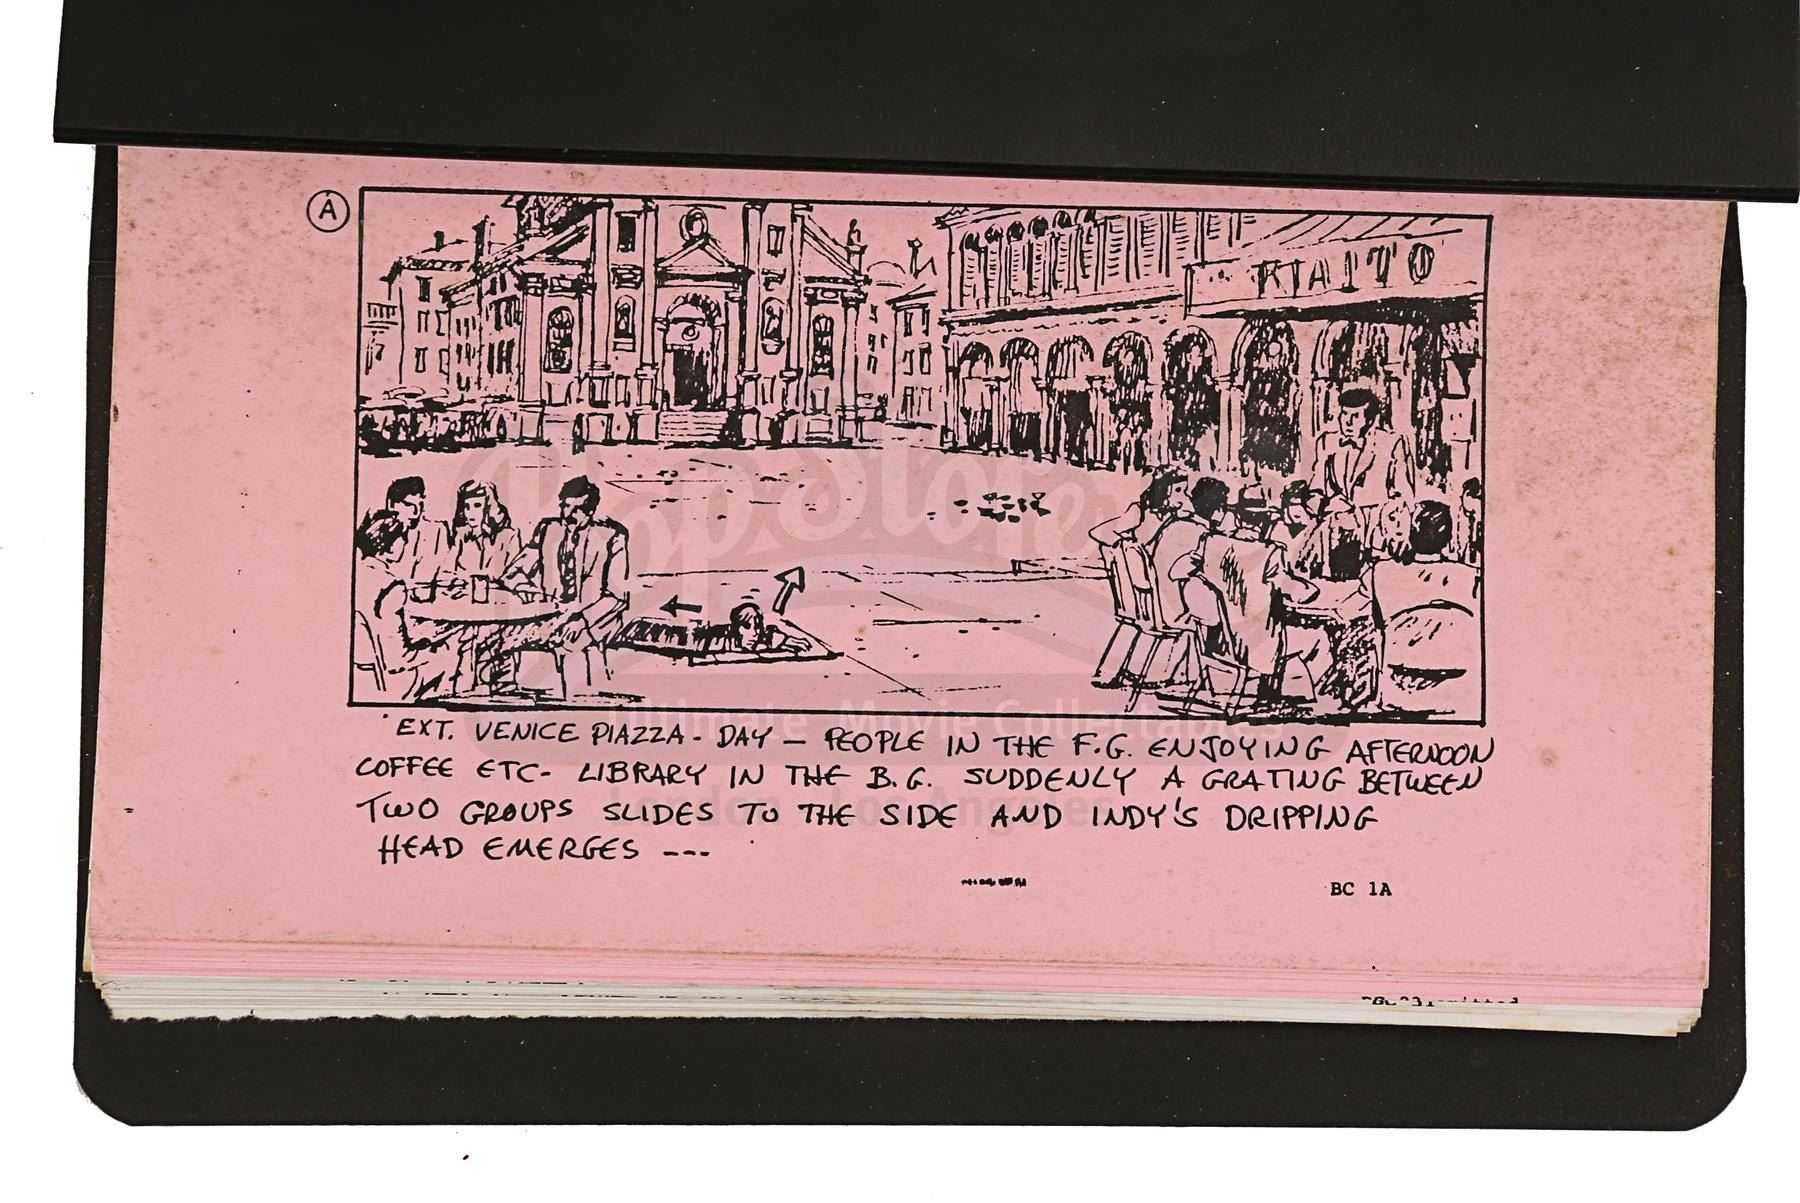 A
RIALTO
EXT. VENICE PIAZZA - DAY — PEOPLE IN THE F.G. ENJOYING AFTERNOON
COFFEE ETC- LIBRARY IN THE B.G. SUDDENLY A GRATING BETWEEN
TWO GROUPS SLIDES TO THE SIDE AND INDY'S DRIPPING
HEAD EMERGES ---
BC 1A
Propstore
Ultimate Movie Collectables
London Los Angeles